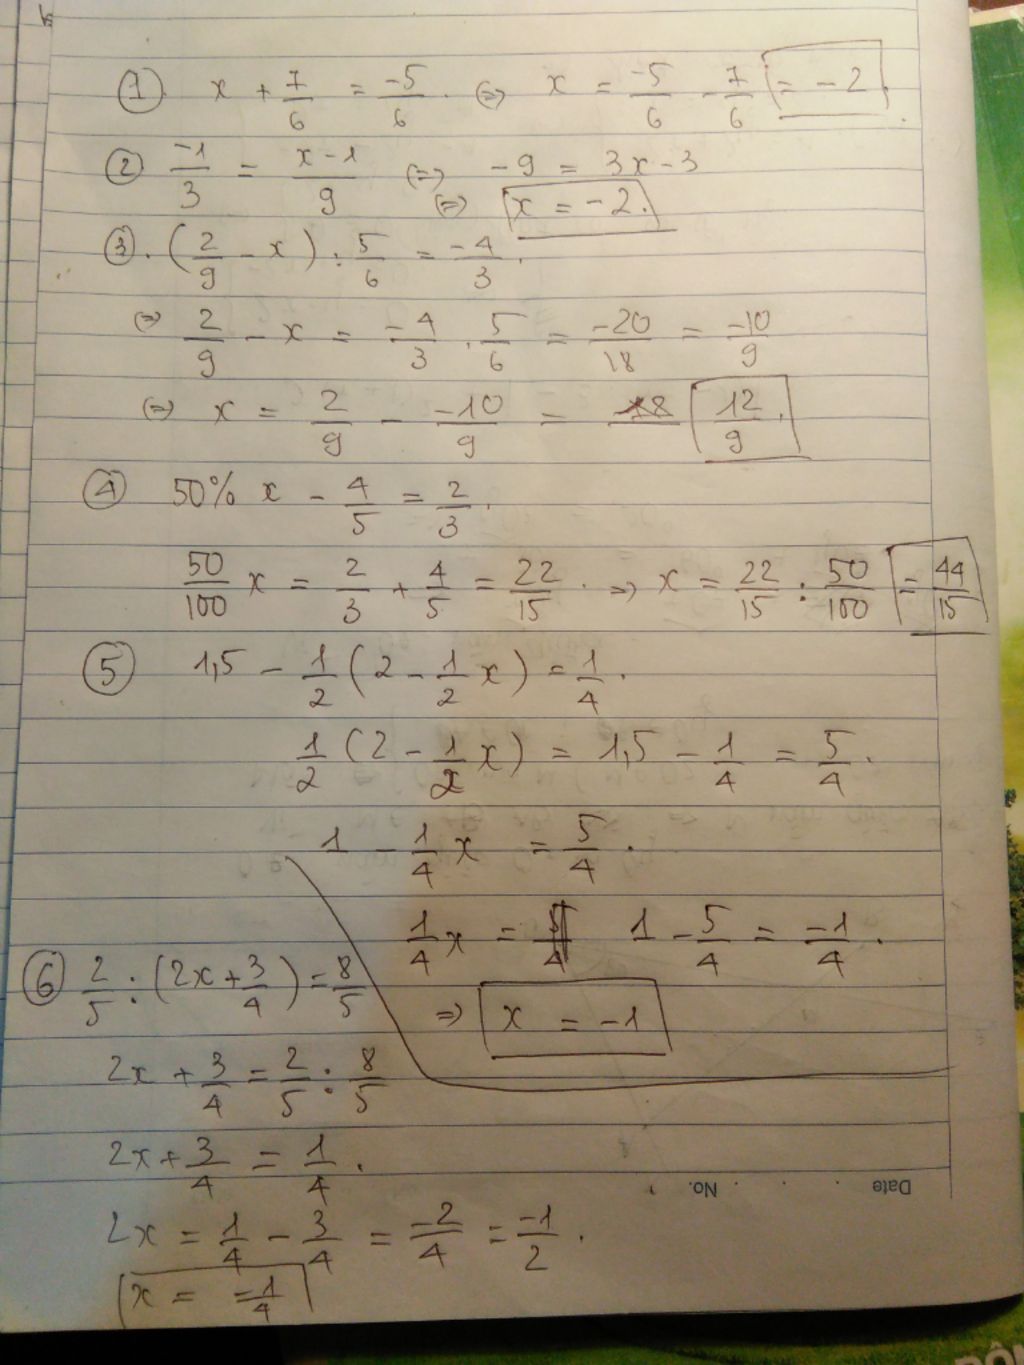 ① x + 7/6 = -5/6. ⇔ x = -5/6 - 7/6 = -2.
② -1/3 = x-1/9 ⇔ -9 = 3x-3
⇔ x = -2.
③. (2/9 - x) : 5/6 = -4/3.
⇔ 2/9 - x = -4/3 . 5/6 = -20/18 = -10/9
⇔ x = 2/9 - -10/9 = 12/9.
④ 50% x - 4/5 = 2/3.
50/100 x = 2/3 + 4/5 = 22/15. ⇒ x = 22/15 : 50/100 = 44/15
⑤ 1,5 - 1/2 (2 - 1/2 x) = 1/4.
1/2 (2 - 1/2 x) = 1,5 - 1/4 = 5/4.
1 - 1/4 x = 5/4.
1/4 x = 1 - 5/4 = -1/4.
⇒ x = -1
⑥ 2/5 : (2x + 3/4) = 8/5
2x + 3/4 = 2/5 : 8/5
2x + 3/4 = 1/4.
2x = 1/4 - 3/4 = -2/4 = -1/2.
x = -1/4
Date . . . No.